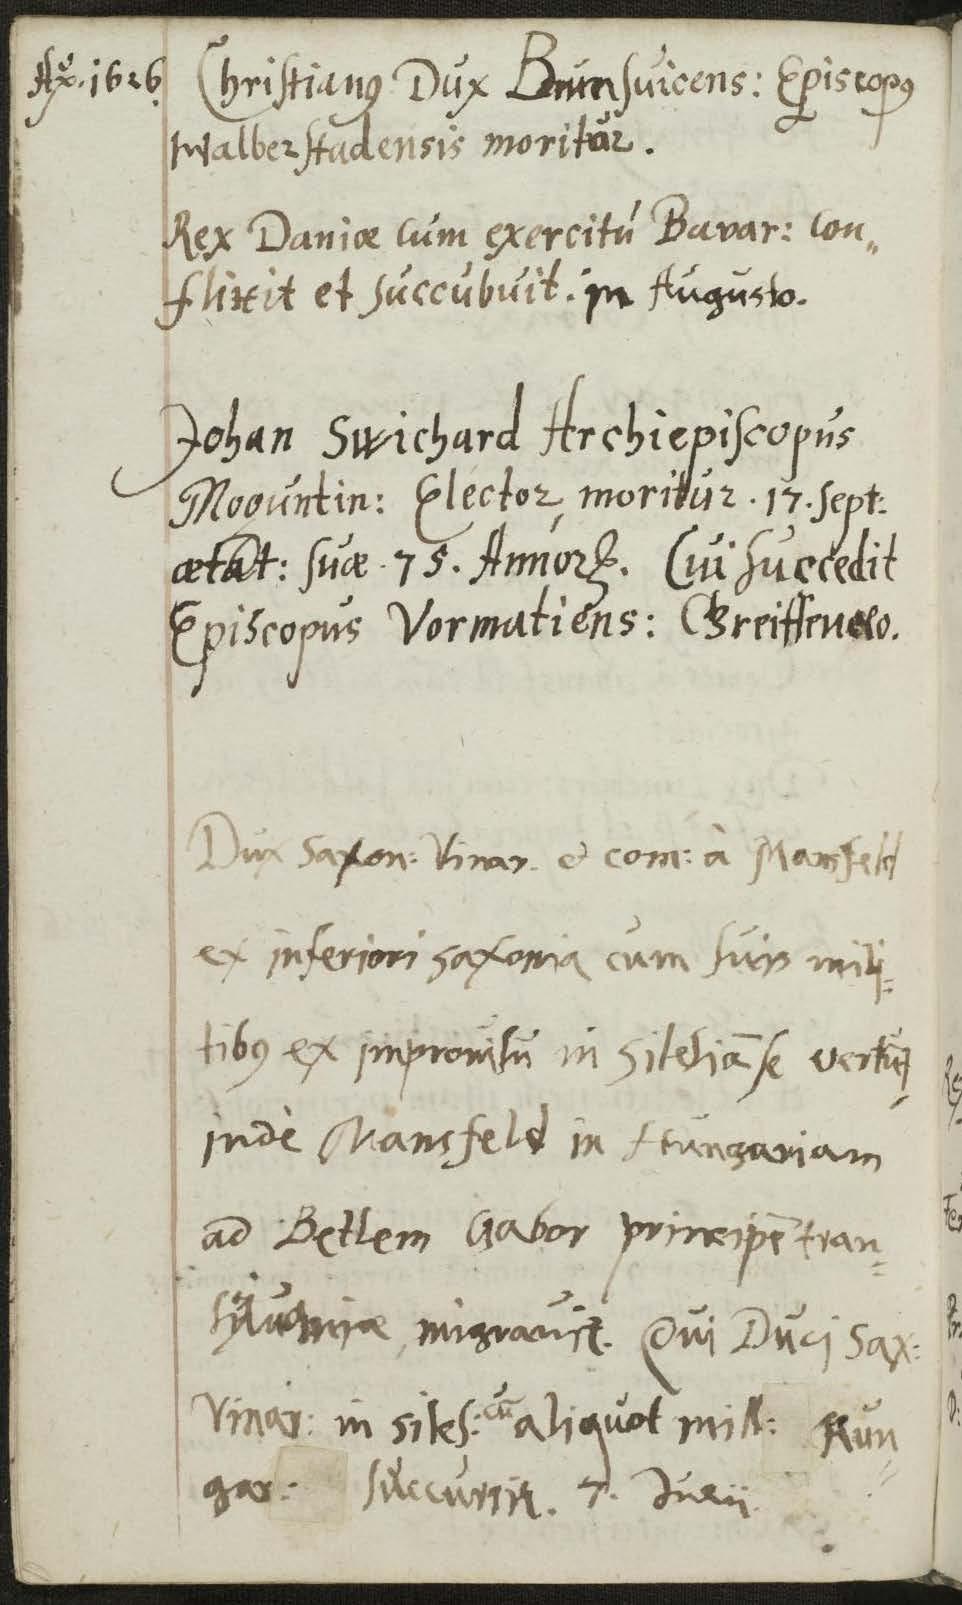 Aō. 1626. Christianꝰ Dux Brunsuicens: Episcopꝰ
Halberstadensis moritur.
Rex Daniæ cum exercitu Bavar: con„
flixit et succubuit. in Augusto.
Johan Swichard Archiepiscopus
Moguntin: Elector, moritur. 17. Sept:
ætat: suæ. 75. Annorꝝ. Cui succedit
Episcopus Vormatiens: Greiffenclo.
Dux Saxon: Vinar. & com: à Mansfeld
ex inferiori saxonia cum suis mili=
tibꝰ ex improuisu in Silesiā se vertūt,
inde Mansfeld in Hungariam
ad Betlem Gabor principē tran=
syluaniæ, migrauit. Qui Duci Sax:
Vinar: in siles: cū aliquot mill: Hun=
gar: succurrit. 7. Junii.